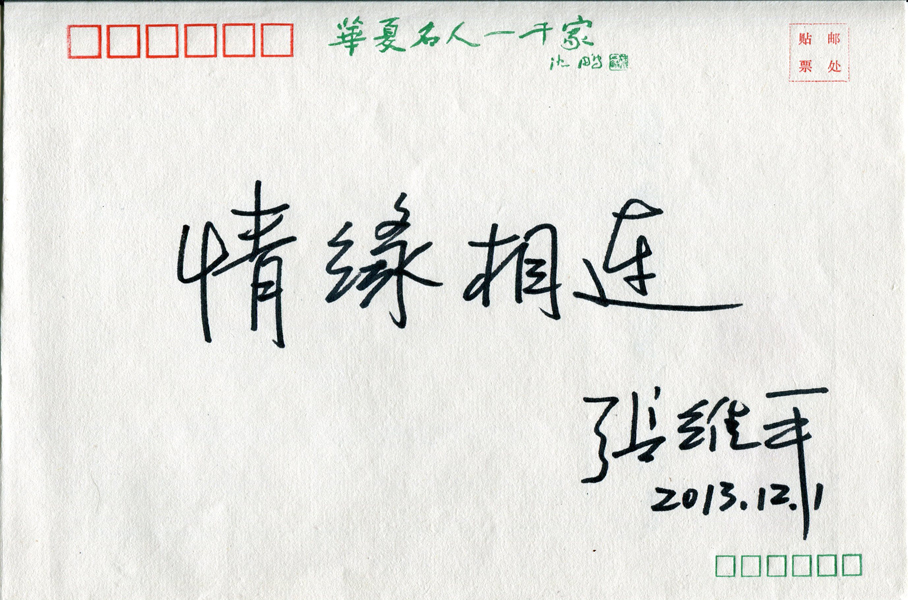 華夏名人一千家
沈鹏
贴 邮
票 处
情缘相连
張維平
2013.12.1